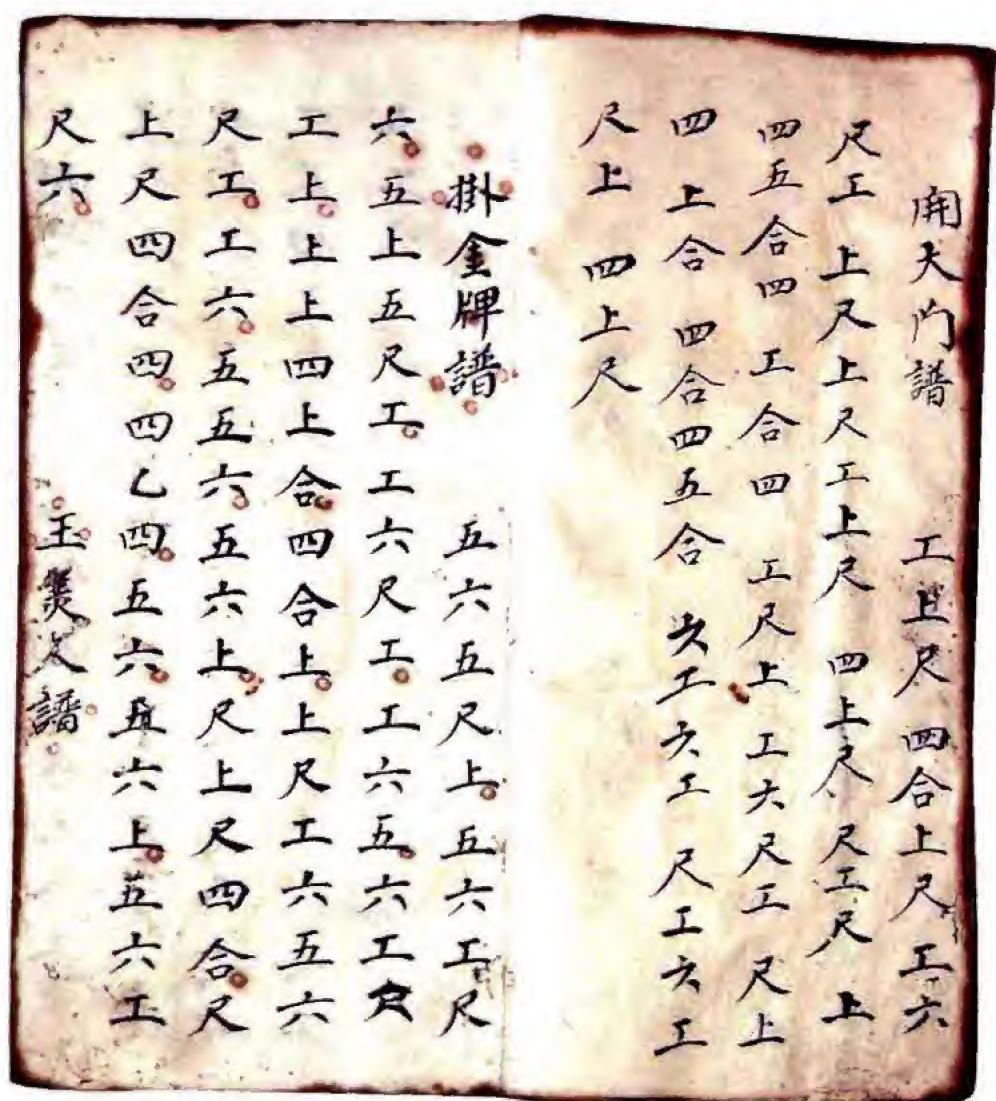 開大門譜 工上尺 四合上尺 工六
尺工 上尺上尺工上尺 四上尺 尺工尺 上
四五合四 工合四 工尺上 工六尺工 尺上
四上合 四合四五合 六工六工 尺工六工
尺上 四上尺
掛金牌譜 五六五尺上五六工尺
六五上五尺工工六尺工工六五六工尺
工上上上四上合四合上上尺工六五六
尺工工六五五六五六上尺上尺四合尺
上尺四合四四乙四五六五六上五六工
尺六 玉美人譜